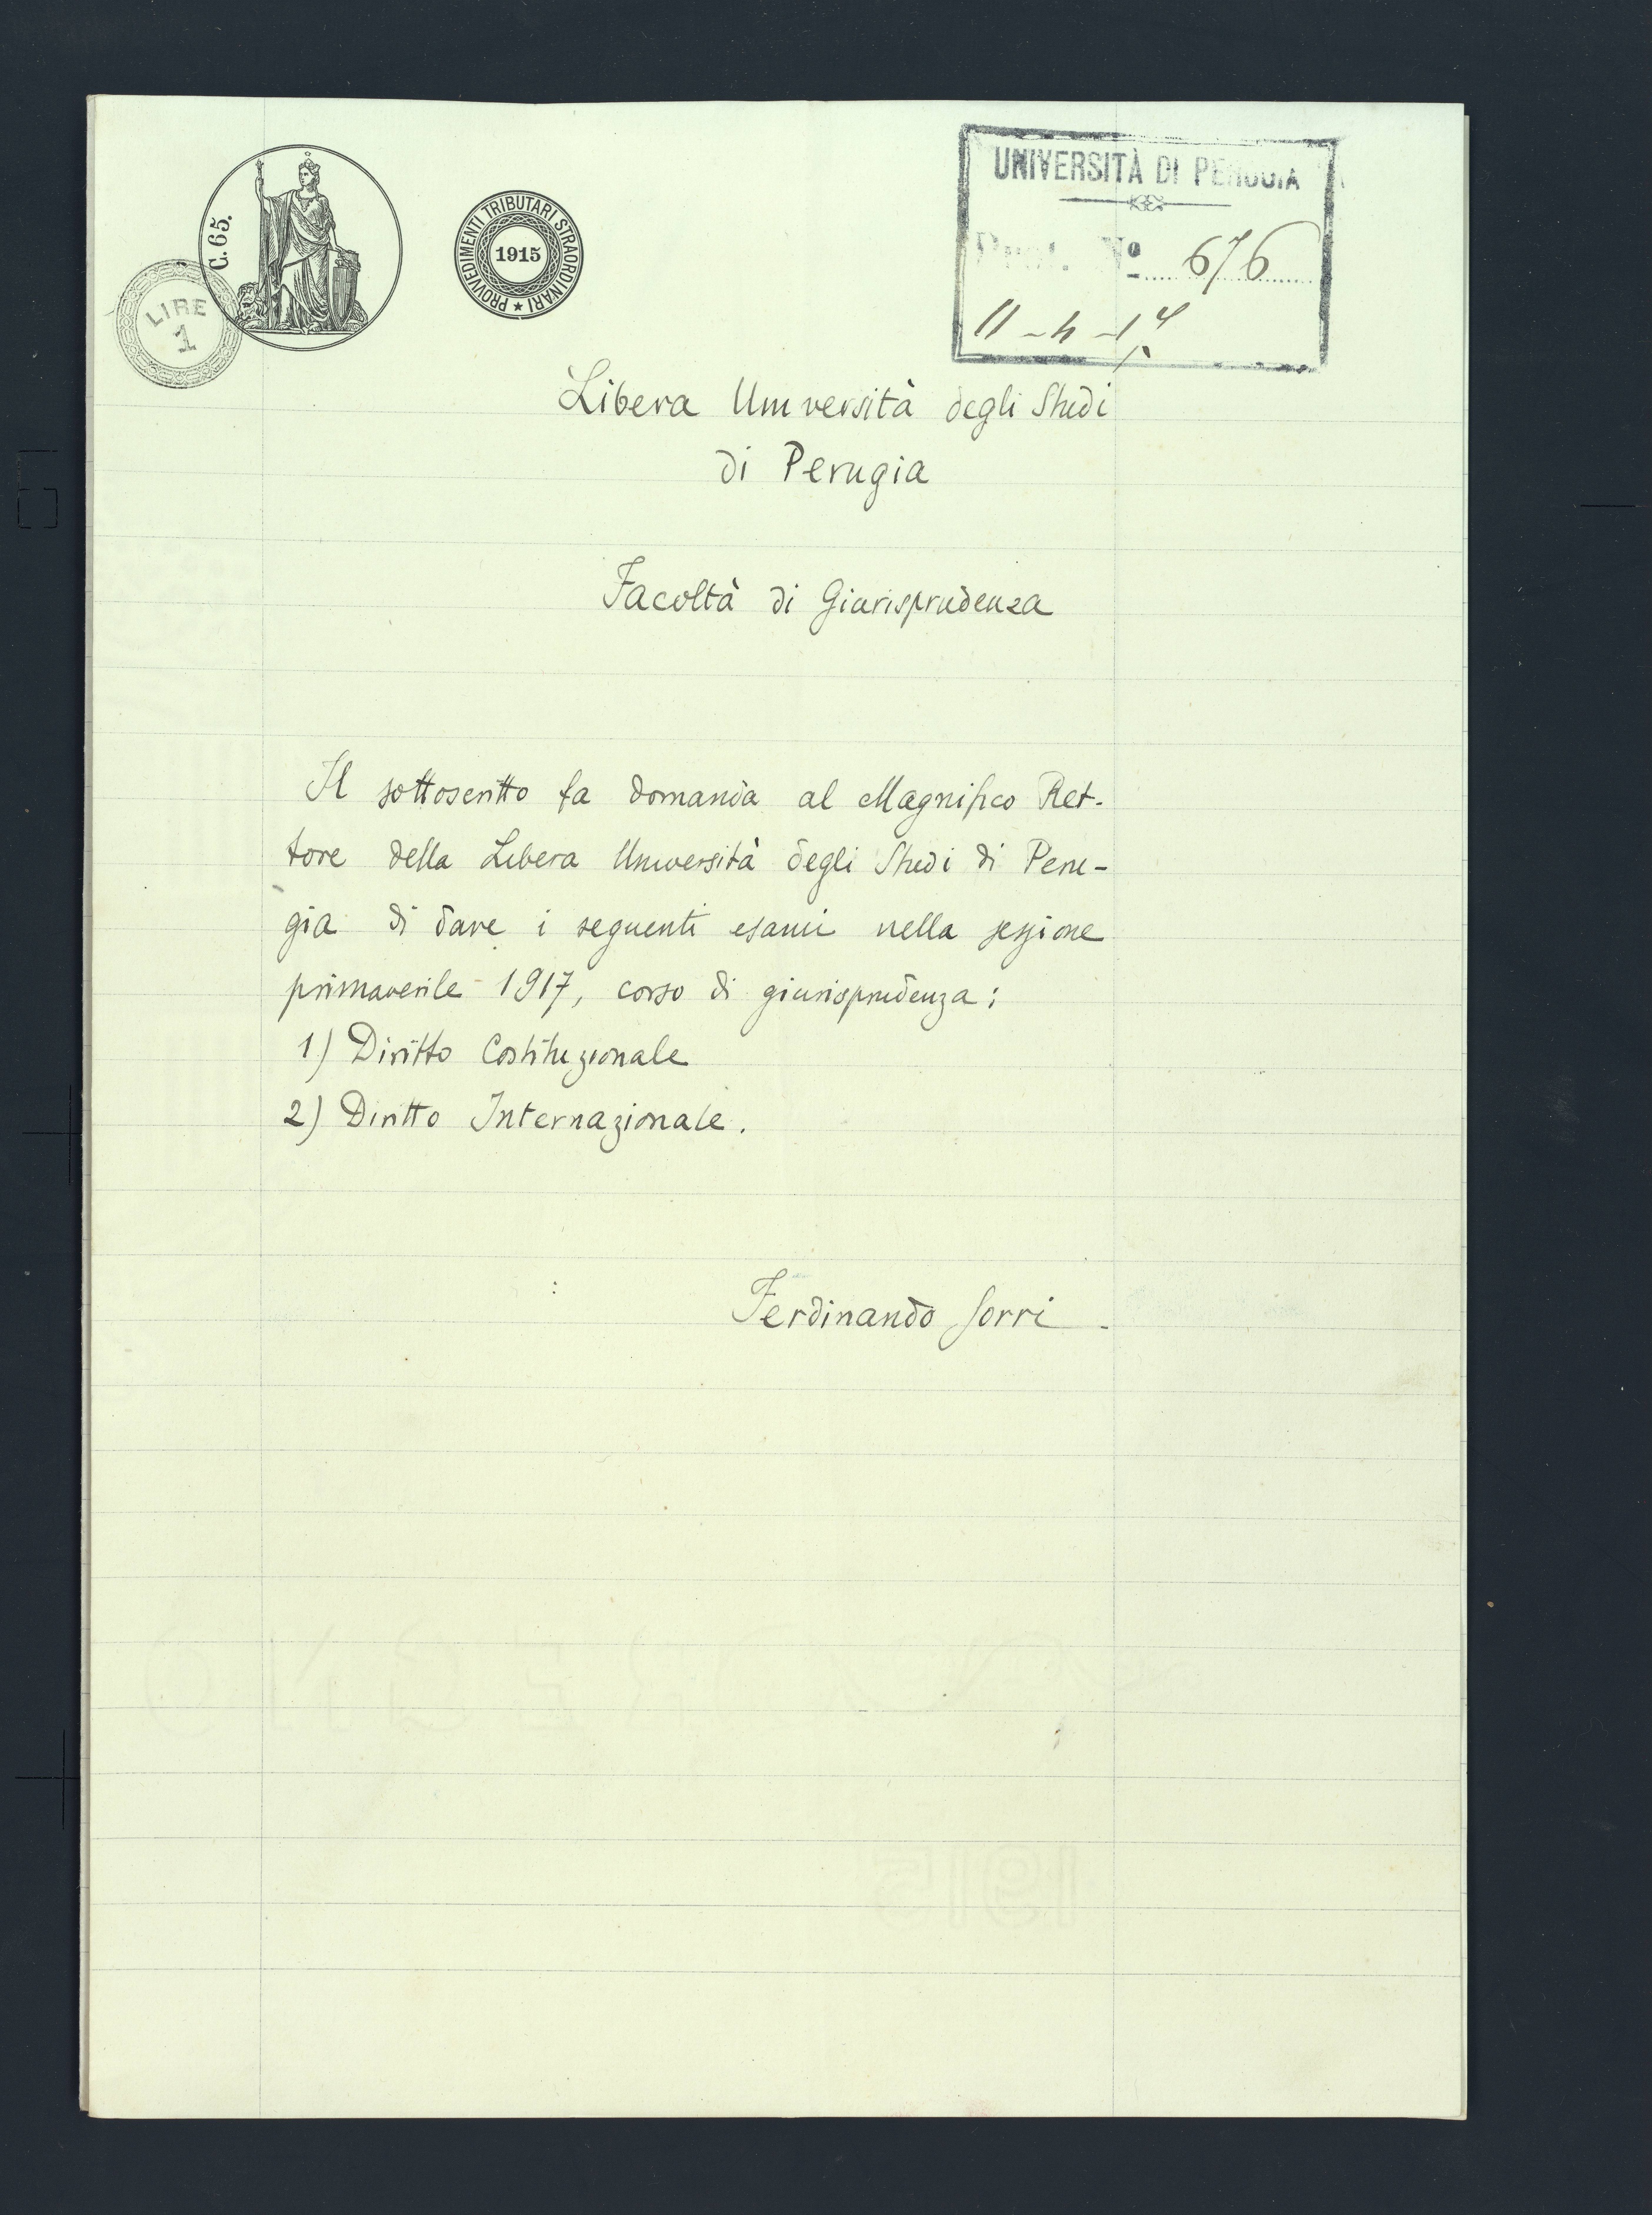 C. 65.
LIRE
1
PROVVEDIMENTI TRIBUTARI STRAORDINARI
1915
UNIVERSITÀ DI PERUGIA
Prot. Nº 676
11-4-17
Libera Università degli Studi
di Perugia
Facoltà di Giurisprudenza
Il sottoscritto fa domanda al Magnifico Ret-
tore della Libera Università degli Studi di Peru-
gia di dare i seguenti esami nella sezione
primaverile 1917, corso di giurisprudenza:
1) Diritto Costituzionale
2) Diritto Internazionale.
Ferdinando Sorri
1915